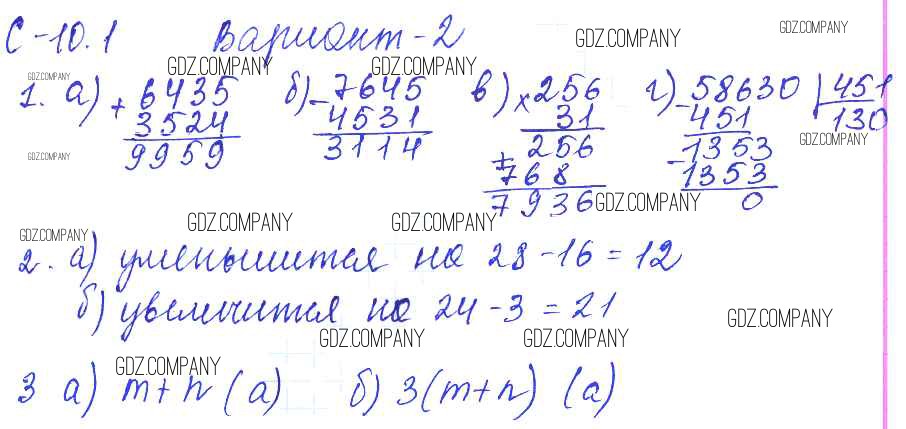 С-10.1 Вариант-2 GDZ.COMPANY GDZ.COMPANY
GDZ.COMPANY GDZ.COMPANY GDZ.COMPANY
1. а) + 6435 б) - 7645 в) × 256 г) - 58630 | 451
3524 4531 31 451 130
9959 3114 + 256 - 1353 GDZ.COMPANY
GDZ.COMPANY 768 1353
7936 GDZ.COMPANY 0
GDZ.COMPANY GDZ.COMPANY GDZ.COMPANY
2. а) уменьшится на 28 - 16 = 12
б) увеличится на 24 - 3 = 21 GDZ.COMPANY
GDZ.COMPANY GDZ.COMPANY
GDZ.COMPANY
3 а) m+n (а) б) 3(m+n) (а)